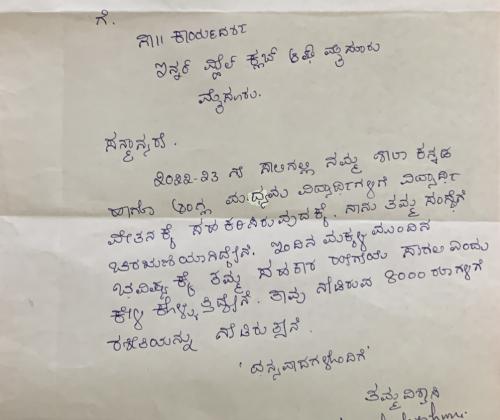 ಗೆ.
ಗಾ॥ ಕಾರ್ಯದರ್ಶಿ
ಇನ್ನರ್ ವ್ಹೀಲ್ ಕ್ಲಬ್ ಆಫ್ ಮೈಸೂರು
ಮೈಸೂರು.
ಸನ್ಮಾನ್ಯರೆ.
2022-23 ನೆ ಸಾಲಿನಲ್ಲಿ ನಮ್ಮ ಶಾಲಾ ಕನ್ನಡ
ಹಾಗೂ ಆಂಗ್ಲ ಮಾಧ್ಯಮ ವಿದ್ಯಾರ್ಥಿಗಳಿಗೆ ವಿದ್ಯಾರ್ಥಿ
ವೇತನಕ್ಕೆ ಸಹಕರಿಸಿರುವುದಕ್ಕೆ. ನಾನು ತಮ್ಮ ಸಂಸ್ಥೆಗೆ
ಚಿರಋಣಿಯಾಗಿದ್ದೇನೆ. ಇಂದಿನ ಮಕ್ಕಳ ಮುಂದಿನ
ಭವಿಷ್ಯಕ್ಕೆ ತಮ್ಮ ಸಹಕಾರ ಹೀಗೆಯೇ ಸಾಗಲಿ ಎಂದು
ಕೇಳಿ ಕೊಳ್ಳುತ್ತಿದ್ದೇನೆ. ತಾವು ನೀಡಿರುವ 8000 ರೂಗಳಿಗೆ
ರಶೀತಿಯನ್ನು ನೀಡಿರುತ್ತೇನೆ.
'ಧನ್ಯವಾದಗಳೊಂದಿಗೆ'
ತಮ್ಮ ವಿಶ್ವಾಸಿ